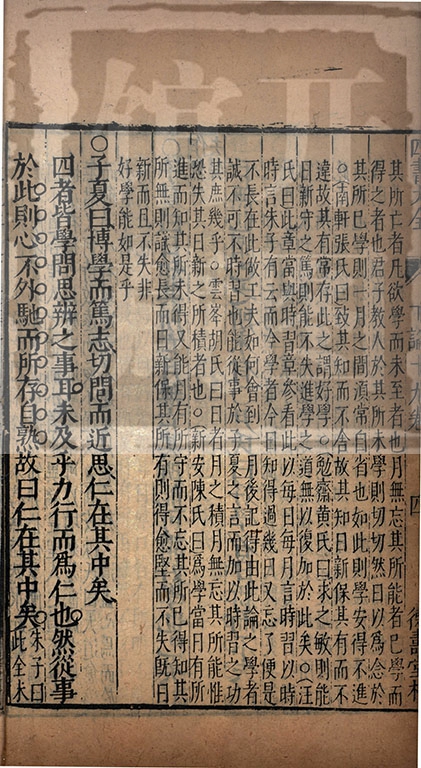 四書大全 下論十九卷 四
其所亡者凡欲學而未至者也月無忘其所能者已學而
得之者也君子教人於其所未學則切切然日以爲念於
其所已學則一月之間湏常自省也如此則學安得不進
○南軒張氏曰致其知而不舍故其知日新保其有而不
違故其有常存此之謂好學○勉齋黃氏曰求之敏則能
日新守之篤則能不失進學之道無以復加於此矣○汪
氏曰此章當與時習章參看此以每日每月言時習以時
時言朱子有云而今學者今日知得過幾日又忘了便是
不長在此做工夫如何會到一月後記得由此論之學者
誠不可不時習也能從事於子夏之言而加以時習之功
其庶幾乎○雲峯胡氏曰日者月之積月無忘其所能惟
恐失其日新之所積者也○新安陳氏曰爲學當日有所
進而知其所未得又能月有所守而不忘其所已得知其
所無則識愈長而日新保其所有則得愈堅而不失旣日
新而且不失非
好學能如是乎
○子夏曰博學而篤志切問而近思仁在其中矣
四者皆學問思辨之事耳未及乎力行而爲仁也然從事
於此則心不外馳而所存自熟故曰仁在其中矣
朱子曰
此全未